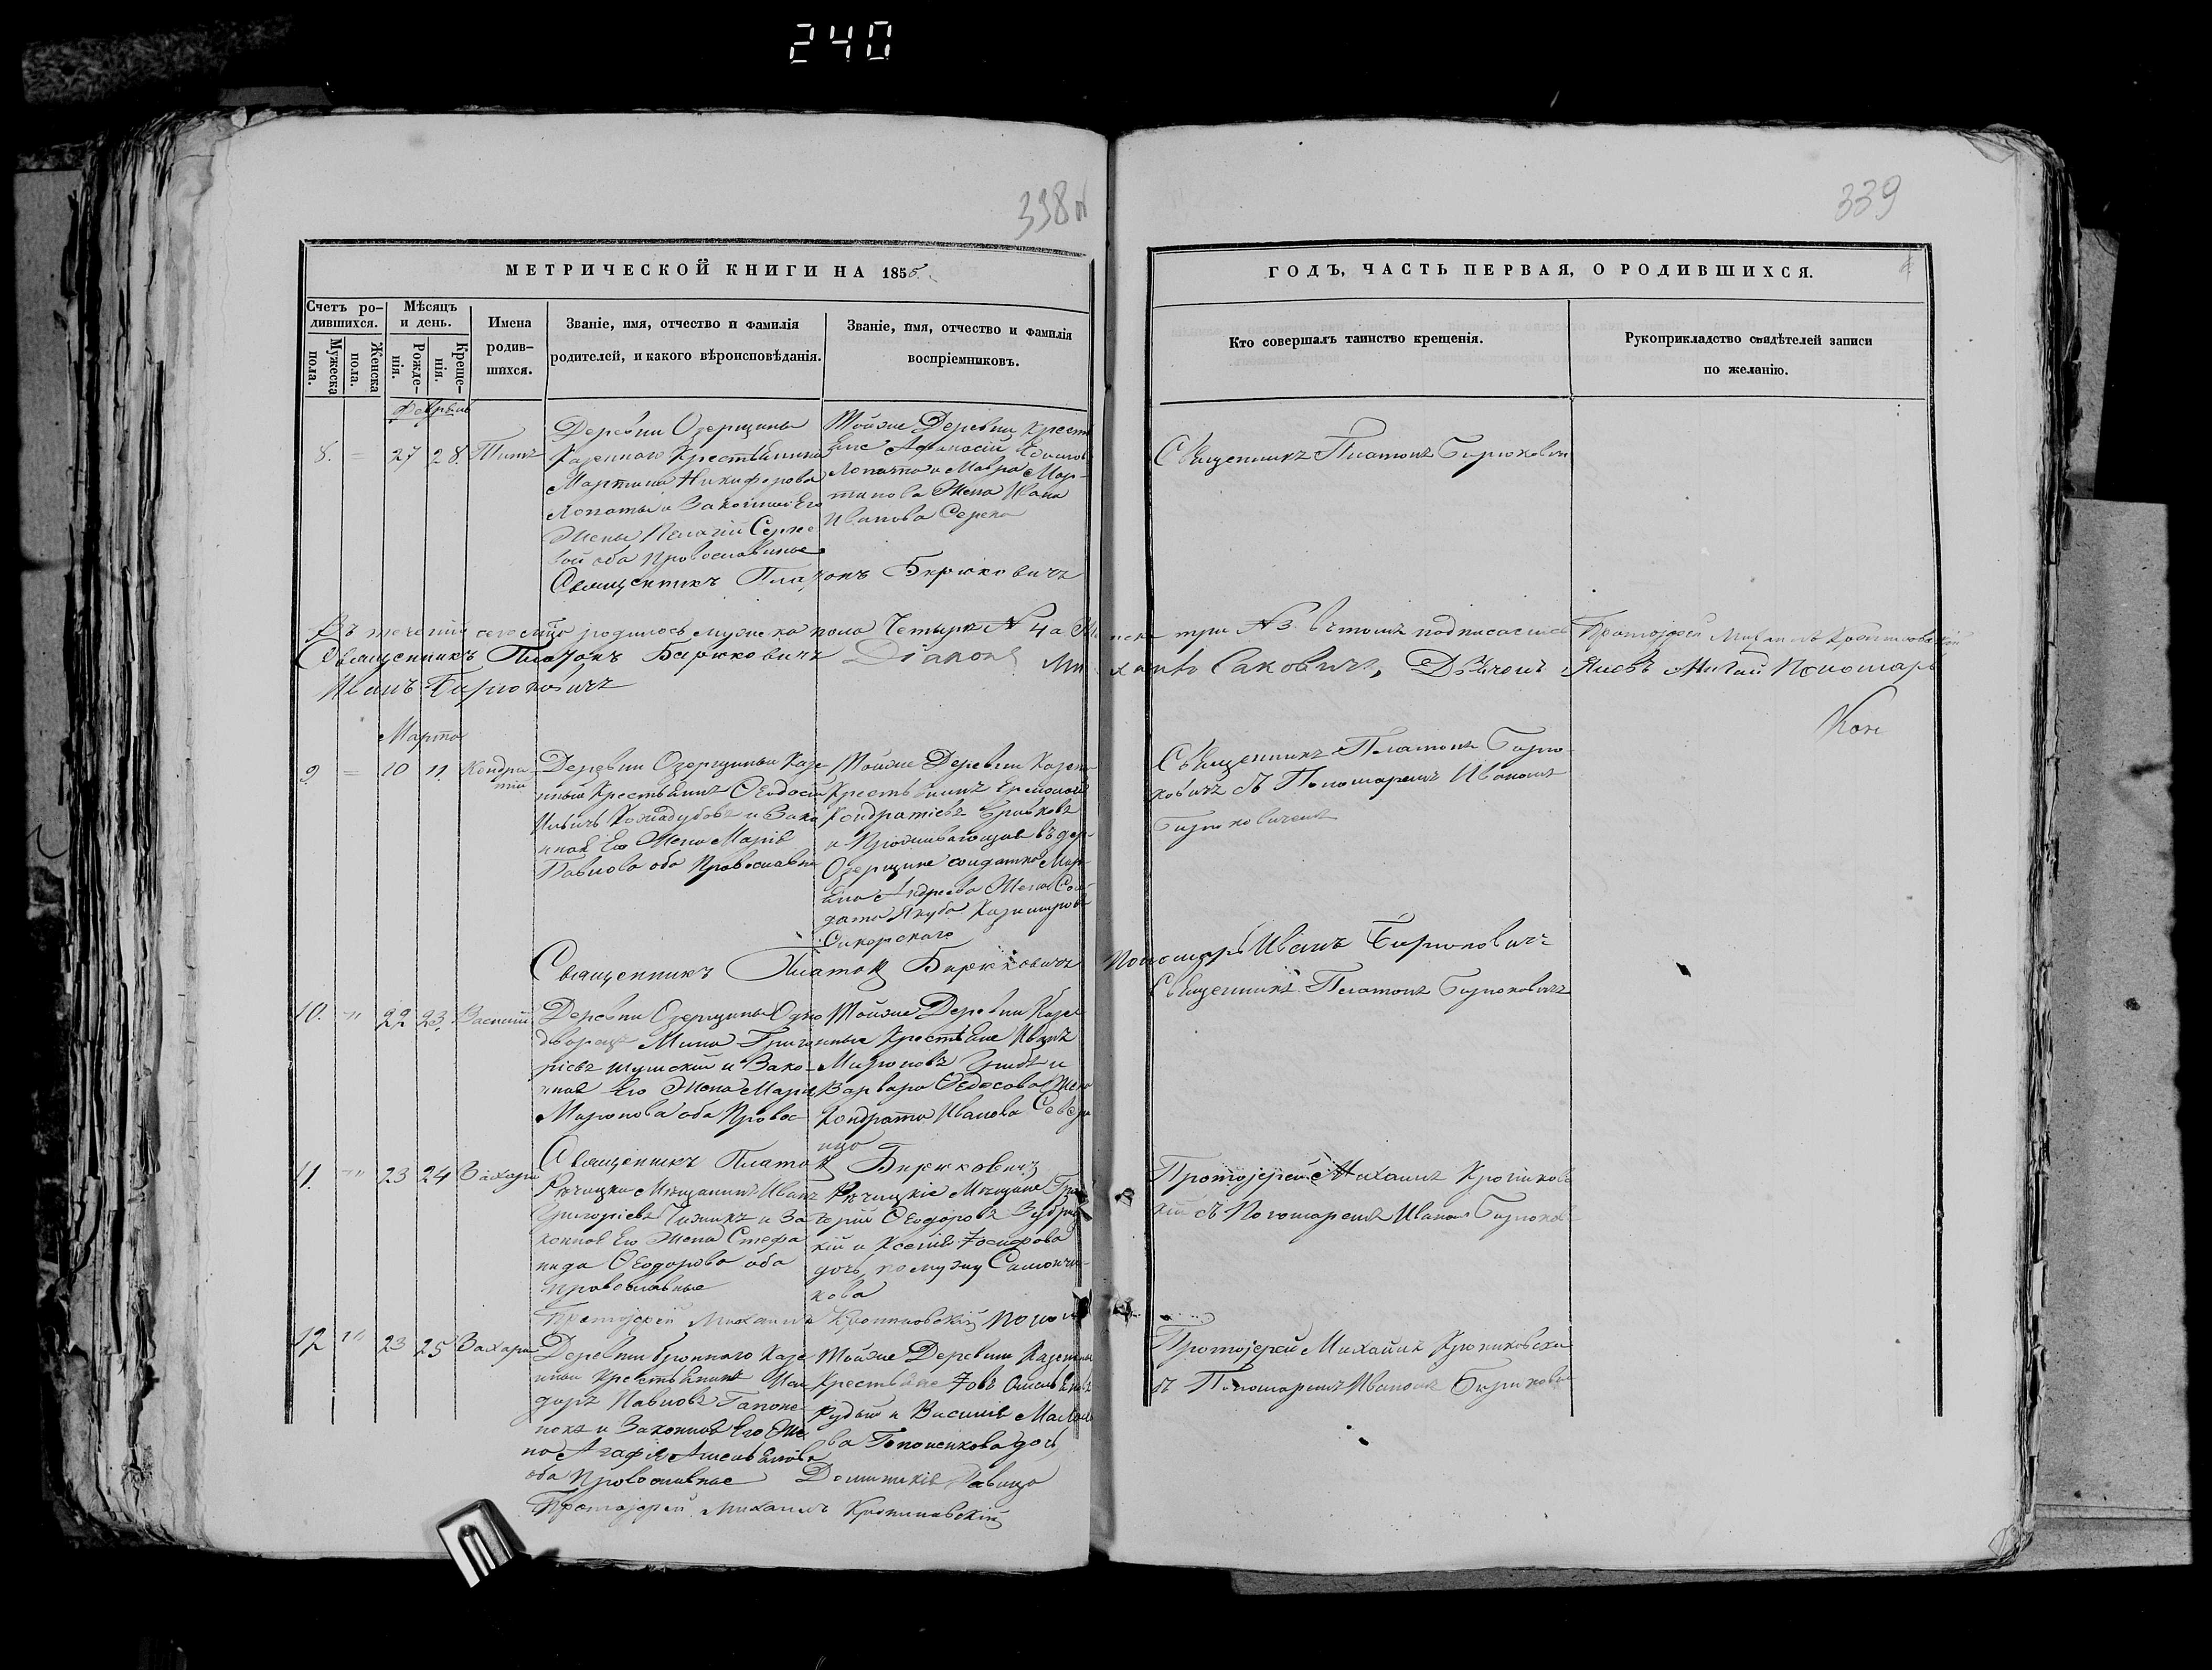 240
338 об
339
МЕТРИЧЕСКОЙ КНИГИ НА 1855.
ГОДЪ, ЧАСТЬ ПЕРВАЯ, О РОДИВШИХСЯ.
Счетъ ро-
дившихся.
Мужеска
пола.
Женска
пола.
Мѣсяцъ
и день.
Рожде-
нія.
Креще-
нія.
Имена
родив-
шихся.
Званіе, имя, отчество и фамилія
родителей, и какого вѣроисповѣданія.
Званіе, имя, отчество и фамилія
воспріемниковъ.
Кто совершалъ таинство крещенія.
Рукоприкладство свидѣтелей записи
по желанію.
Февраль
8. = 27 28. Титъ
Деревни Озерщины
Казеннаго Крестьянина
Мартина Никифорова
Лопаты и Законной Его
Жены Пелагіи Сергѣе
вой оба Православные
Тойже Деревни Крест
яне Афанасій
Лопата и Мавра Мар-
тинова Жена Ивана
Иванова Серека
Священникъ Платонъ Бирюковичъ
Священникъ Платонъ Бирюковичъ
Въ теченіи сего мѣсца родилось мужеска пола Четыре № 4 а Женска три № 3. въ томъ подписались Протоіерей Михаилъ
Священникъ Платонъ Бирюковичъ Діаконъ Михаилъ Саковичъ, Дьячекъ Пономарь
Иванъ Бирюковичъ
Марта
9. = 10 11. Кондра
тій
Деревни Озерщины Казе
нный Крестьянинъ Ѳеодосій
Ильичъ и Зако
нная Его Жена Марія
Павлова оба Православн
Тойже Деревни Казен
Крестьянинъ Еремей
Кондратіевъ
и Проживающая въ дер-
Озерщине солдатка Мар
яна Андреева Жена Сол
дата Якуба Казимирова
Сикорскаго
Священникъ Платонъ Бирю-
ковичъ съ Пономаремъ Иваномъ
Бирюковичемъ
Священникъ Платонъ Бирюковичъ Пономарь Иванъ Бирюковичъ
10. " 22 23. Василій
Деревни Озерщины Одно
дворецъ Мина Григо
ріевъ Шумскій и Зако-
нная Его Жена Марія
Миронова оба Правос
Тойже Деревни Казе
нные Крестьяне Иванъ
Мироновъ Грибъ и
Варвара Ѳедосова Жена
Кондрата Иванова
Священникъ Платонъ Бирюковичъ
Священникъ Платонъ Бирюковичъ
11. " 23 24 Захарій
Рѣчицкій Мѣщанинъ Иванъ
Григоріевъ Чижикъ и За
конная Его Жена Стефа
нида Ѳеодорова оба
православные
Рѣчицкіе Мѣщане Гри
горій Ѳеодоровъ Зубриц
кій и Ксенія Іосифова
дочь по мужу
кова
Протоіерей Михаилъ
съ Пономаремъ Иваномъ Бирюков
Протоіерей Михаилъ
12 " 23 25 Захарій
Деревни Броннаго Казе
нный Крестьянинъ Иси
доръ Павловъ Гапоне-
нокъ и Законная Его Же
на Агафія Амельянова
оба Православные
Тойже Деревни Казенные
Крестьяне Іовъ Омельяновъ
Рудый и Василія
ва Гапоненкова дочь
Протоіерей Михаилъ
съ Пономаремъ Иваномъ Бирюкови
Протоіерей Михаилъ